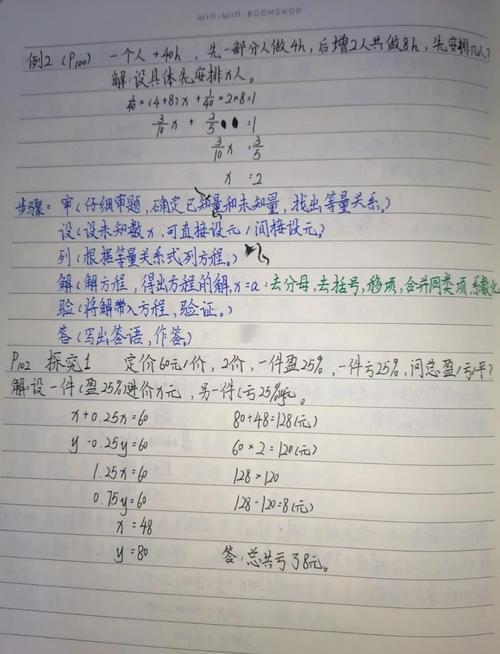 WIN-WIN BOOKSHOP
例2 (P100) 一个人→40h, 先一部分人做4h, 后增2人共做8h, 先安排几人?
解:设具体先安排x人。
1/40×(4+8)x + 1/40×2×8=1
3/10 x + 2/5 =1
3/10 x = 3/5
x = 2
步骤: 审(仔细审题, 确定已知量和未知量, 找出等量关系。)
设(设未知数x, 可直接设元/间接设元。)
列(根据等量关系式列方程。)
解(解方程, 得出方程的解, x=a:去分母, 去括号, 移项, 合并同类项, 系数化
验(将解带入方程, 验证。)
答(写出答语, 作答。)
P102 探究1 定价60元/价, 2价, 一件盈25%, 一件亏25%, 问总盈/亏/平?
解:设一件(盈25%)进价x元, 另一件(亏25%)y元。
x+0.25x=60 80+48=128(元)
y-0.25y=60 60×2=120(元)
1.25x=60 128>120
0.75y=60 128-120=8(元)
x=48
y=80 答:总共亏了8元。